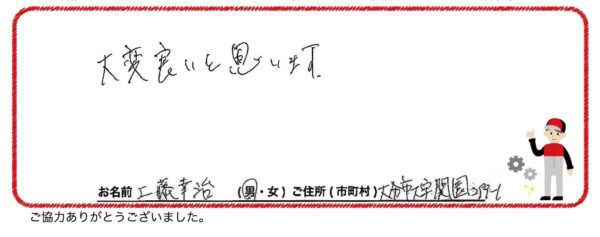 大変良いと思います。
お名前 工藤幸治 (男・女) ご住所(市町村) 大分市大字関園
ご協力ありがとうございました。